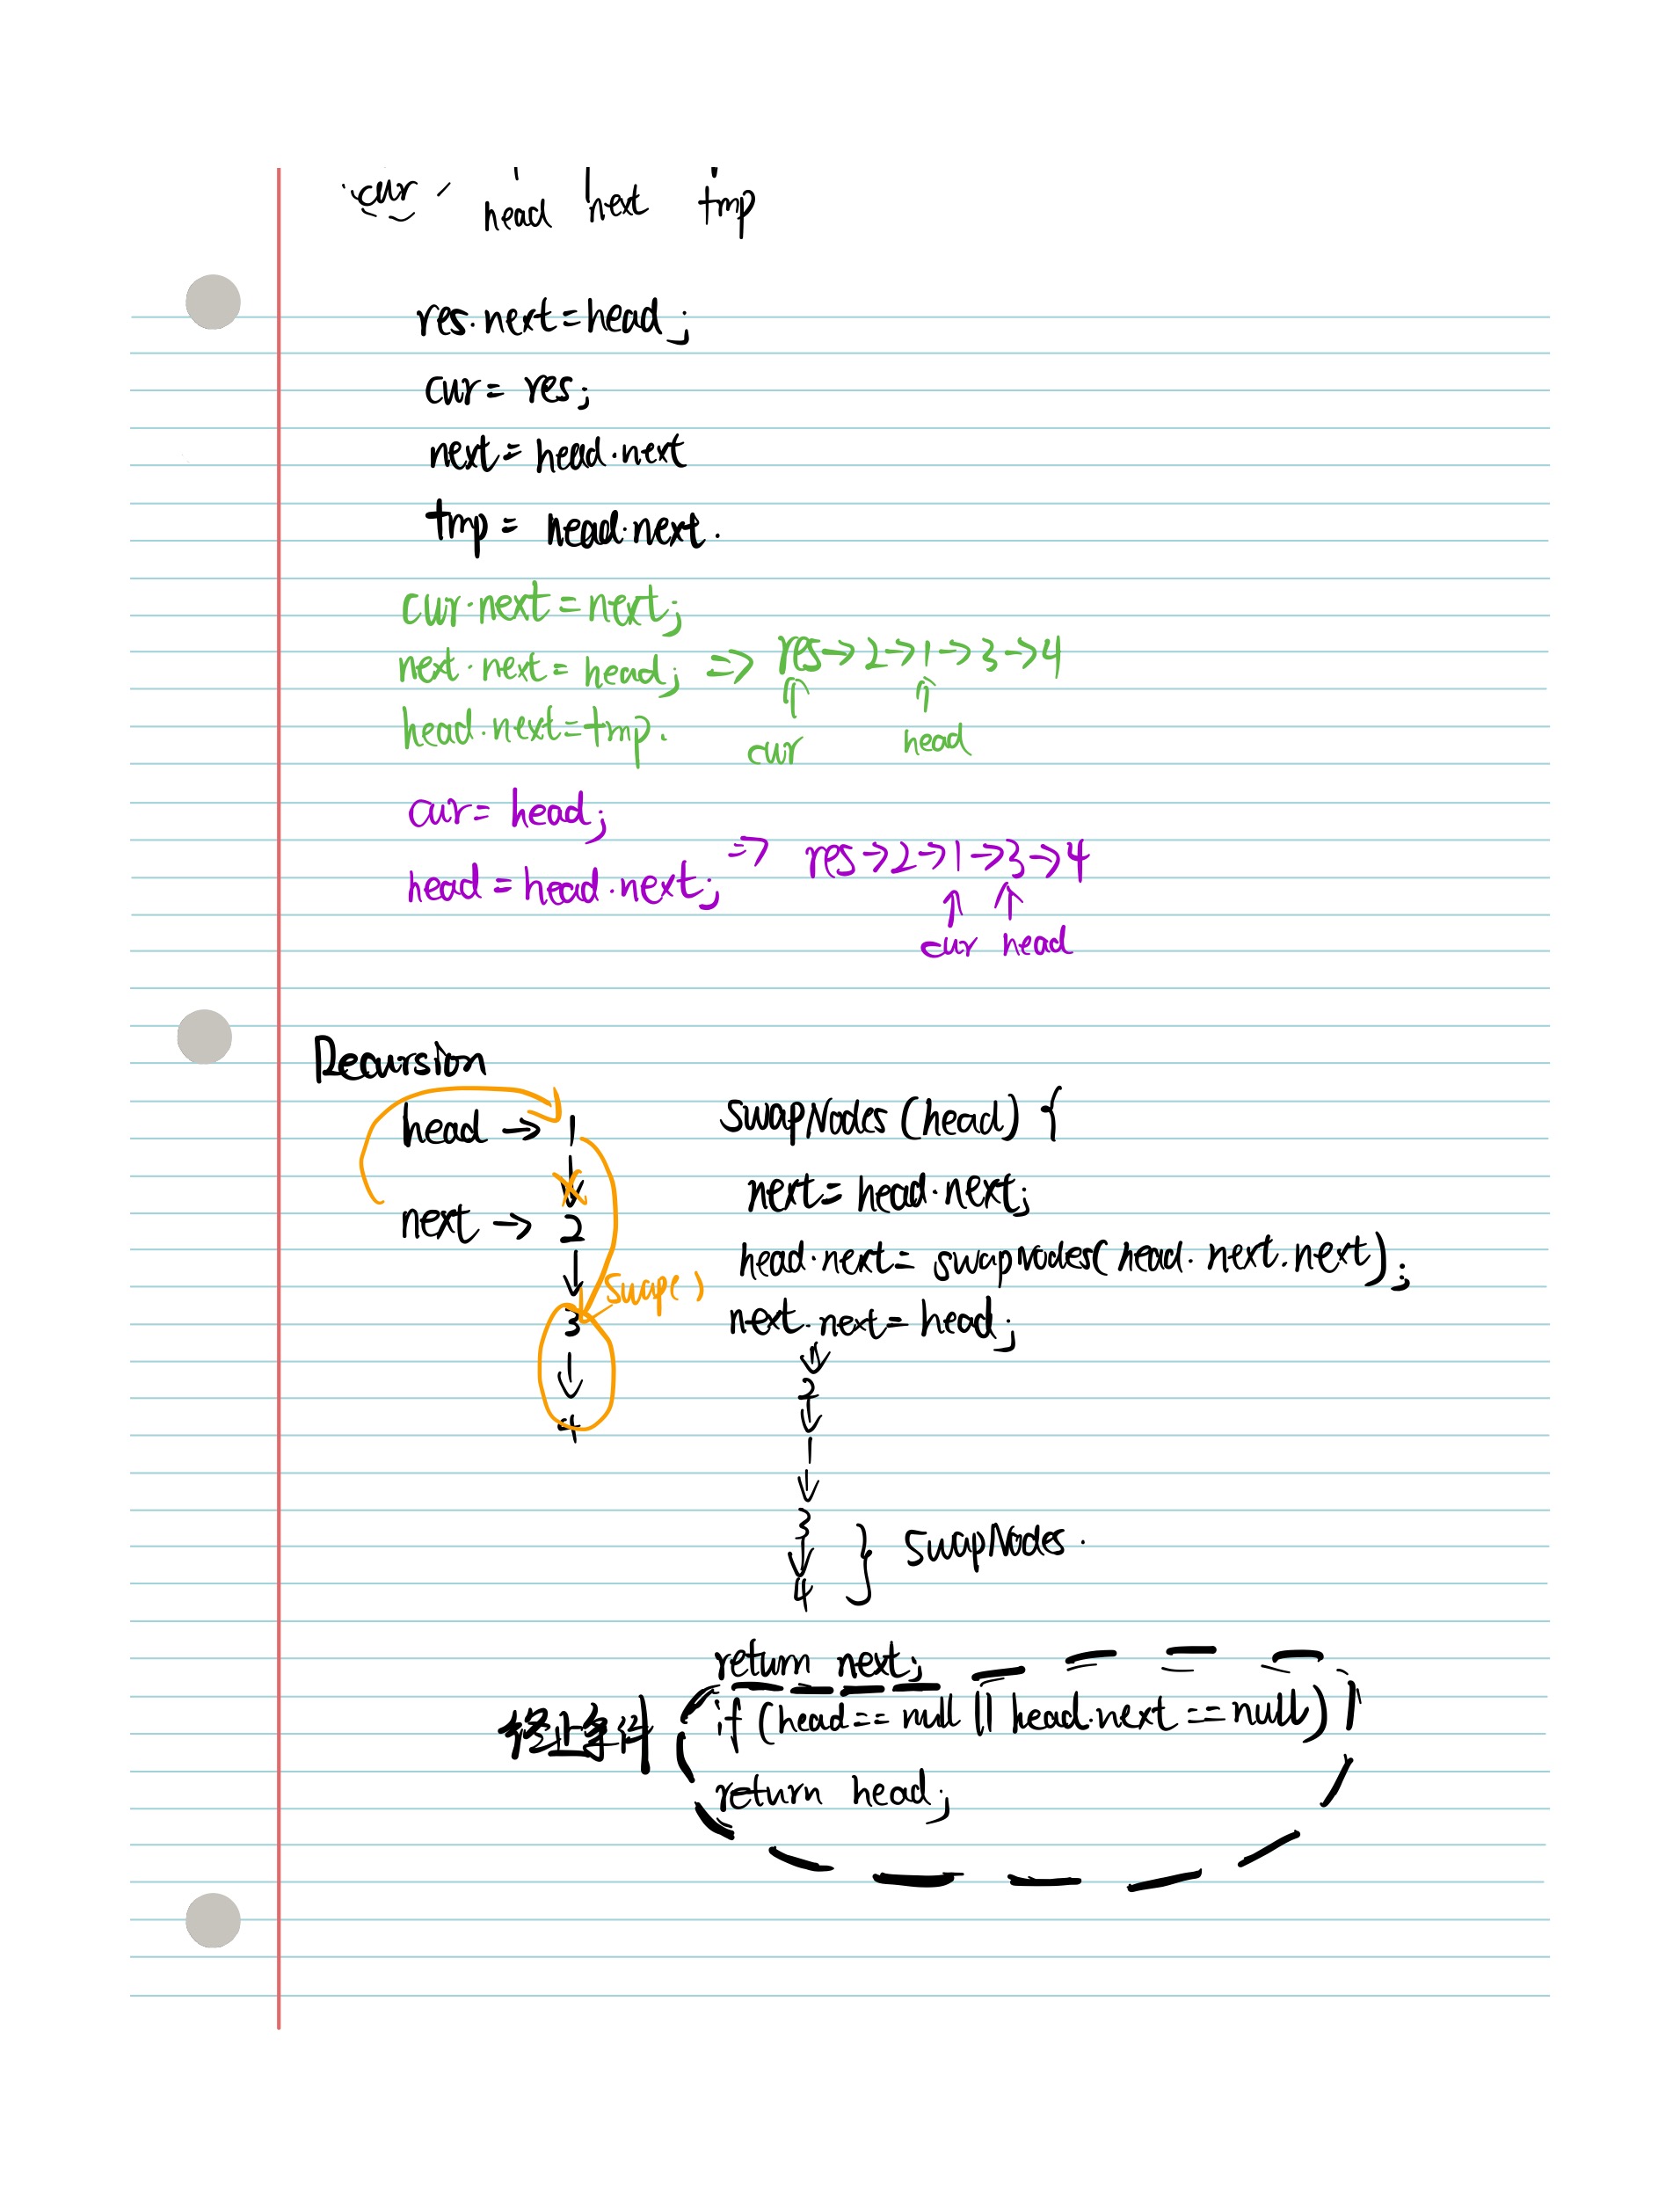 cur head next tmp
res.next=head;
cur= res;
next=head.next
tmp= head.next.
cur.next=next;
next.next=head; => res→2→1→3→4
head.next=tmp. cur head
cur= head;
head=head.next; => res→2→1→3→4
cur head
Recursion
head → 1 swapNodes(head) {
next=head.next;
next → 2
head.next=swapNodes(head.next.next);
swap()
3 next.next=head;
2
4
1
3
} swapNodes.
4
return next;
终止条件 if (head==null || head.next==null)
return head;